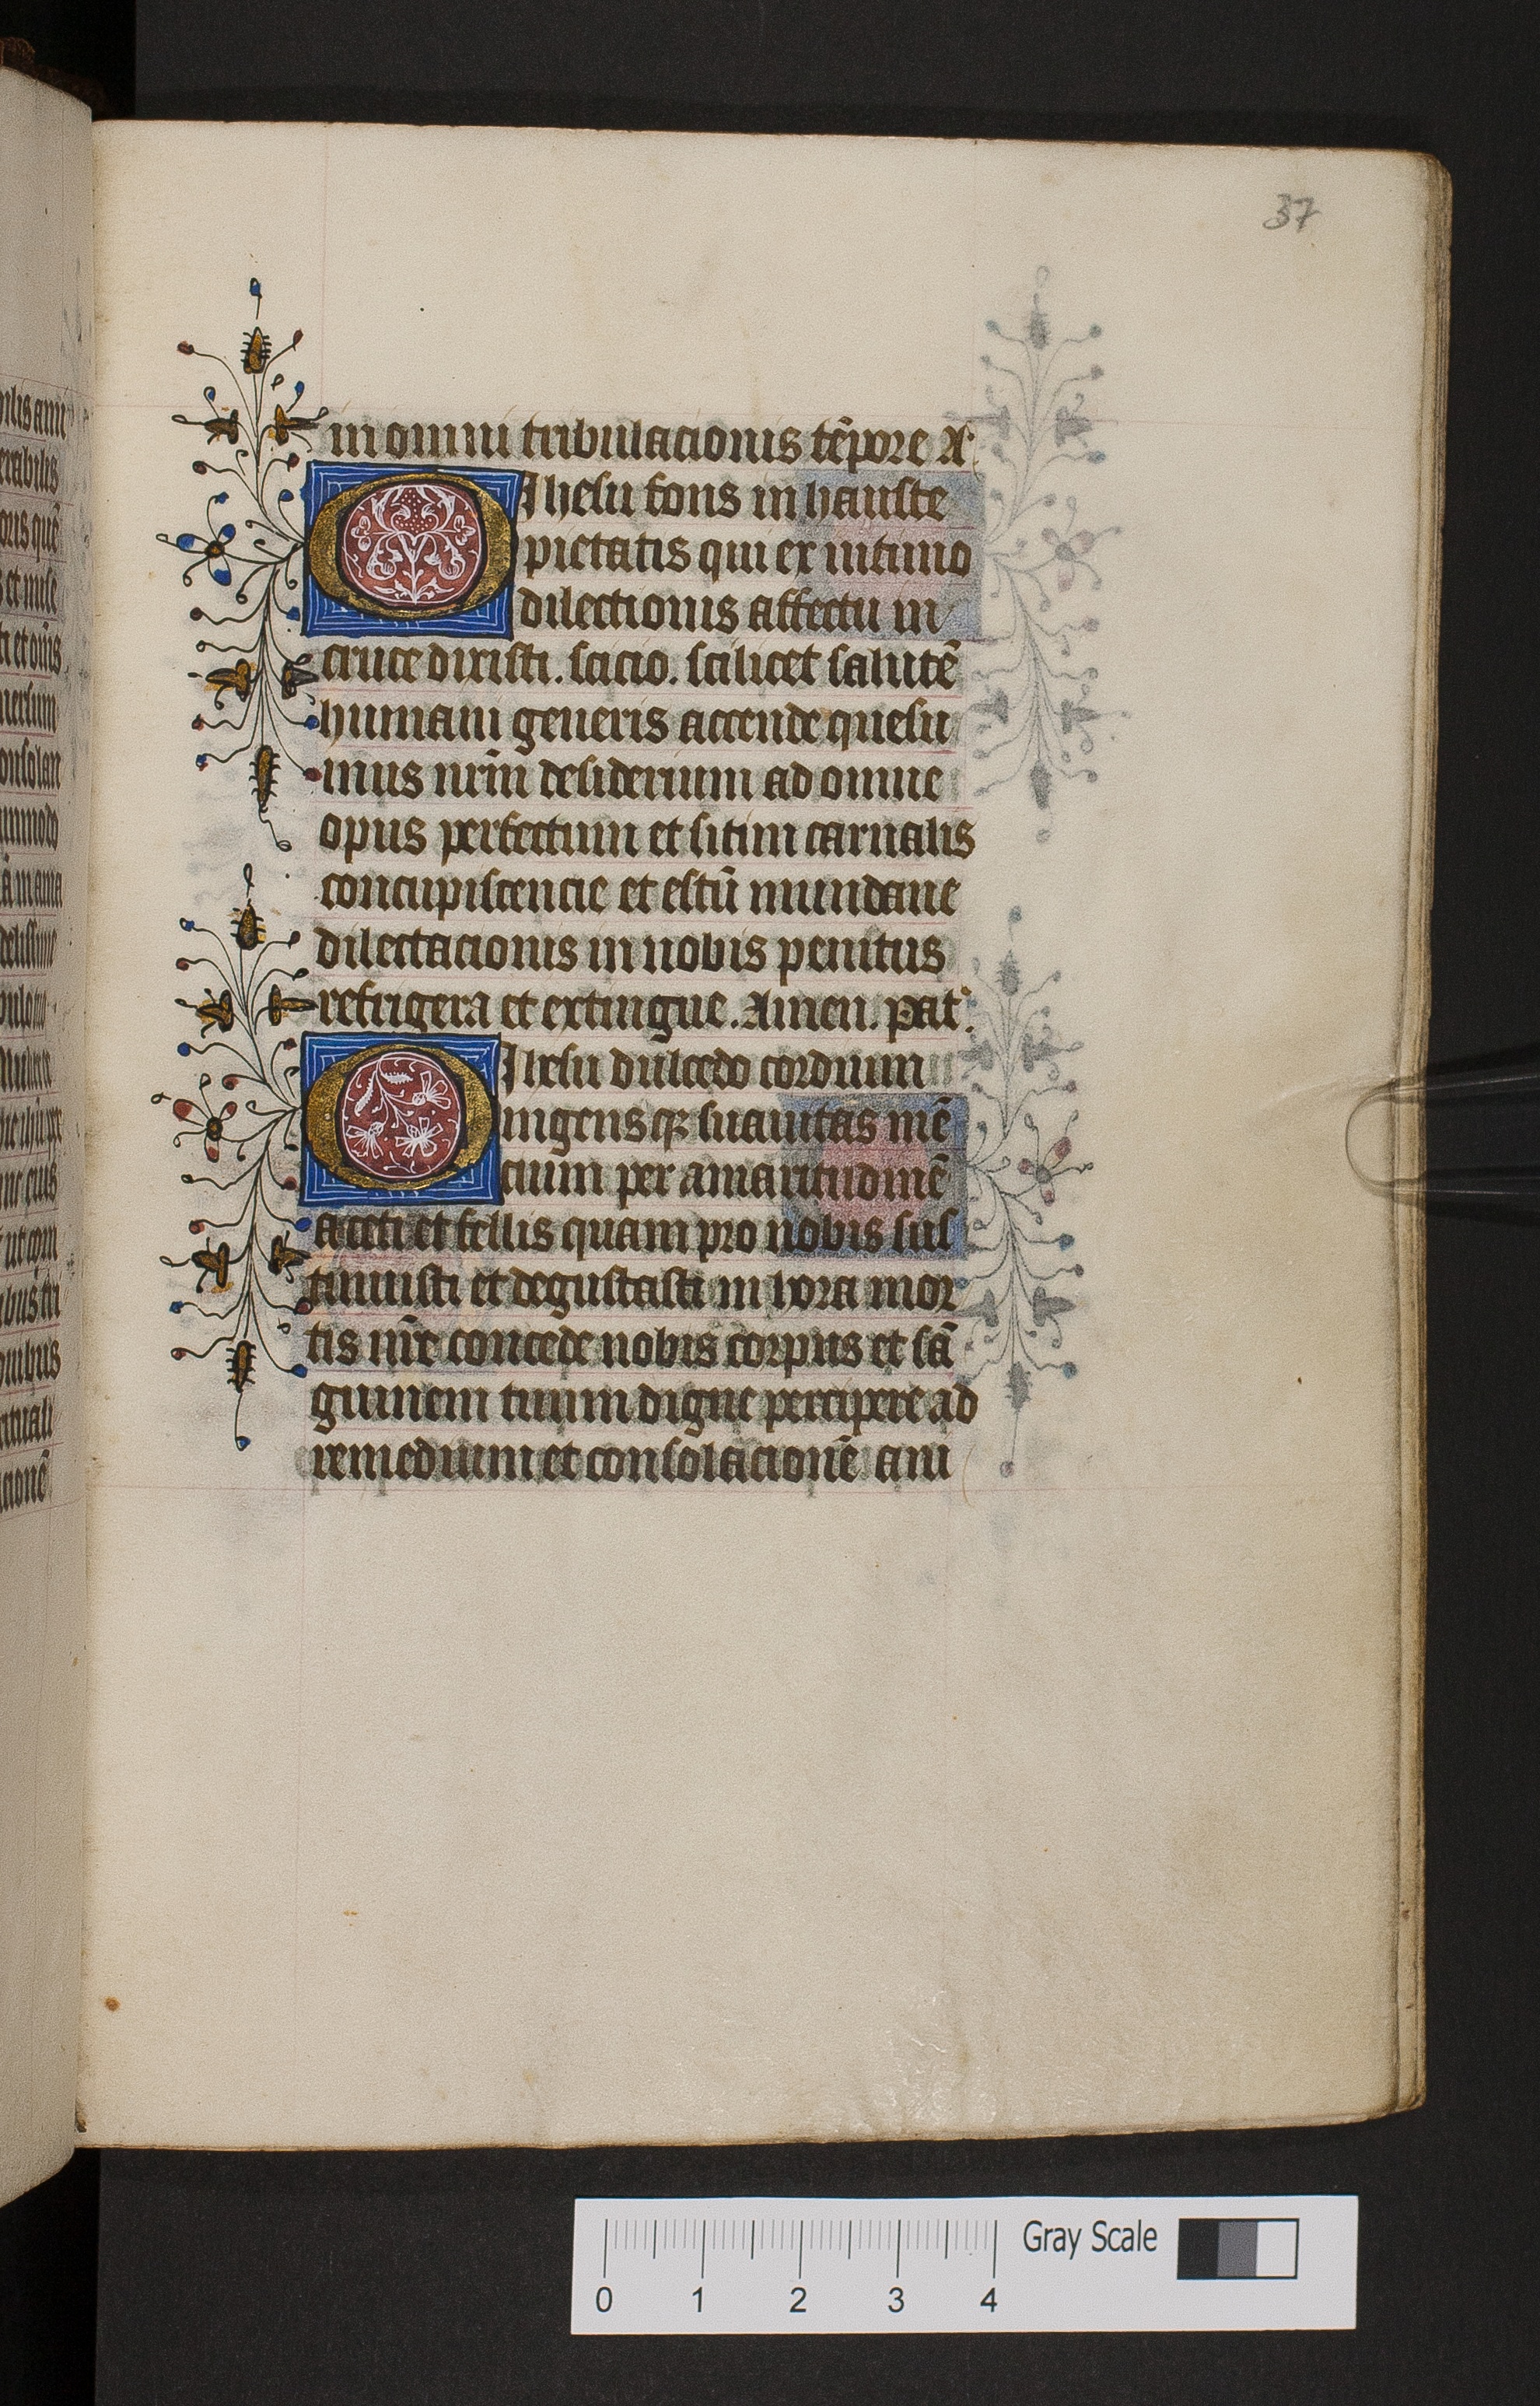 37
in omni tribulacionis tēpore A
O Ihesu fons in hauste
pietatis qui ex intimo
dilectionis affectu in
cruce dixisti. scicio. scilicet salutē
humani generis accende quesu
mus nr̄m desiderium ad omne
opus perfectum et sitim carnalis
concupiscencie et estū mundane
dilectacionis in nobis penitus
refrigera et extingue. Amen. pat
O Ihesu dulcedo cordium
ingensqꝫ suauitas mē
cium per amaritudinē
aceti et fellis quam pro nobis sus
tinuisti et degustasti in hora mor
tis nr̄e concede nobis corpus et sā
guinem tuum digne percipere ad
remedium et consolacionē ani
0 1 2 3 4 Gray Scale